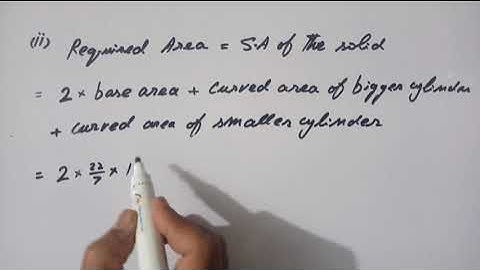 (ii) Required Area = S.A of the solid
= 2 × base area + curved area of bigger cylinder
+ curved area of smaller cylinder
= 2 × 22/7 × 1